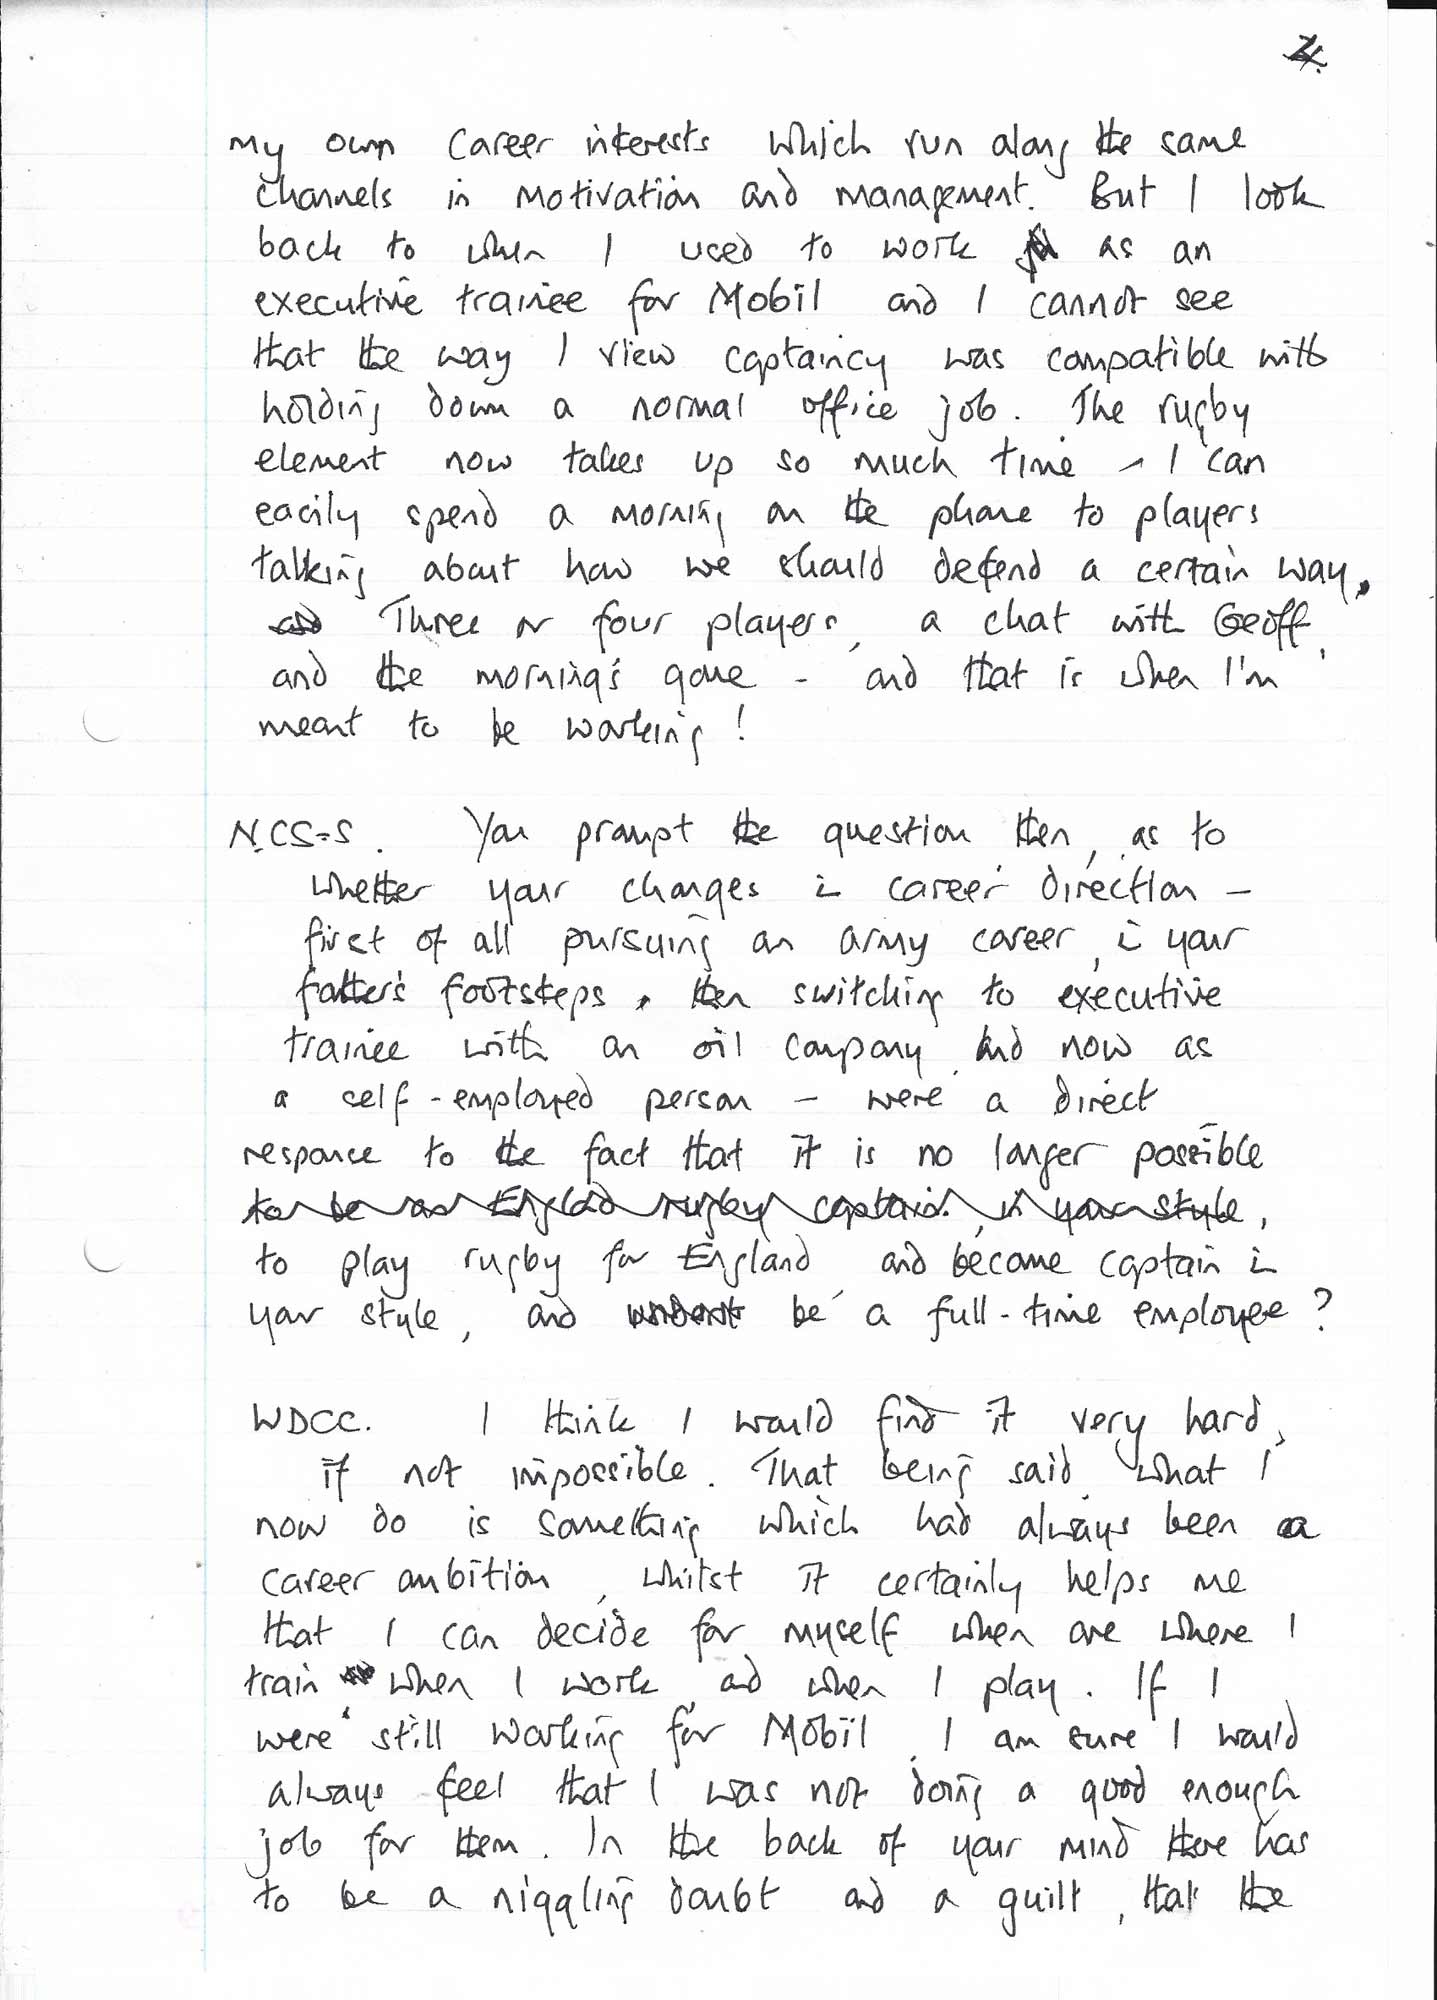 4.
My own career interests which run along the same
channels in motivation and management. But I look
back to when I used to work as an
executive trainee for Mobil and I cannot see
that the way I view captaincy was compatible with
holding down a normal office job. The rugby
element now takes up so much time - I can
easily spend a morning on the phone to players
talking about how we should defend a certain way.
and Three or four players, a chat with Geoff,
and the morning's gone - and that is when I'm
meant to be working!
N.CS-S. You prompt the question then, as to
whether your changes in career direction -
first of all pursuing an army career, in your
father's footsteps, then switching to executive
trainee with an oil company, and now as
a self-employed person - were a direct
response to the fact that it is no longer possible
to be an England rugby captain in your style,
to play rugby for England, and become captain in
your style, and be a full-time employee?
WDCC. I think I would find it very hard,
if not impossible. That being said, what I
now do is something which had always been a
career ambition, whilst it certainly helps me
that I can decide for myself when are where I
train, when I work, and when I play. If I
were still working for Mobil, I am sure I would
always feel that I was not doing a good enough
job for them. In the back of your mind there has
to be a niggling doubt and a guilt, that the